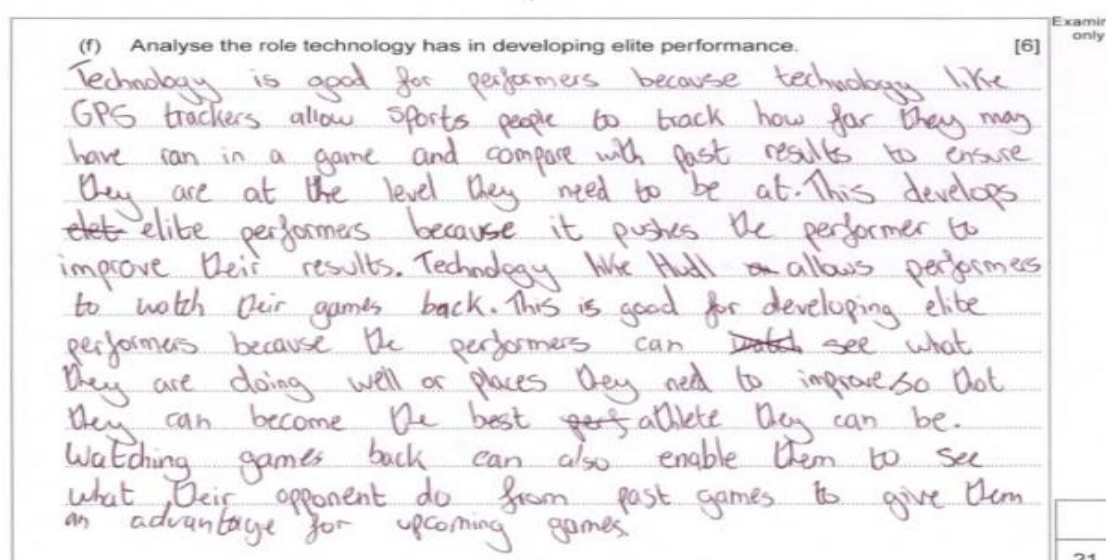 Examin
only
(f) Analyse the role technology has in developing elite performance. [6]
Technology is good for performers because technology like
GPS trackers allow sports people to track how far they may
have ran in a game and compare with past results to ensure
they are at the level they need to be at. This develops
elite performers because it pushes the performer to
improve their results. Technology like Hudl allows performers
to watch their games back. This is good for developing elite
performers because the performers can see what
they are doing well or places they need to improve so that
they can become the best athlete they can be.
Watching games back can also enable them to see
what their opponent do from past games to give them
an advantage for upcoming games